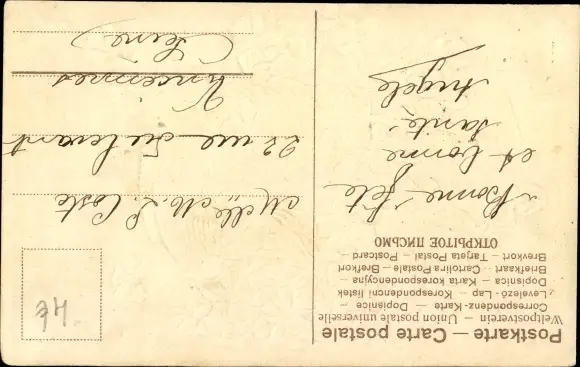 Postkarte — Carte postale
Weltpostverein — Union postale universelle
Correspondenz-Karte — Dopisnice —
Levelező-Lap — Korespondencni listek
Dopisnica — Karta korespondencyjna —
Briefkaart — Cartolina Postale — Brefkort
Brevkort — Tarjeta Postal — Postcard
ОТКРЫТОЕ ПИСЬМО
Bonne fête
et bonne
santé.
Angèle
Melle M. L. Coste
22 rue
Vincennes
(Seine)